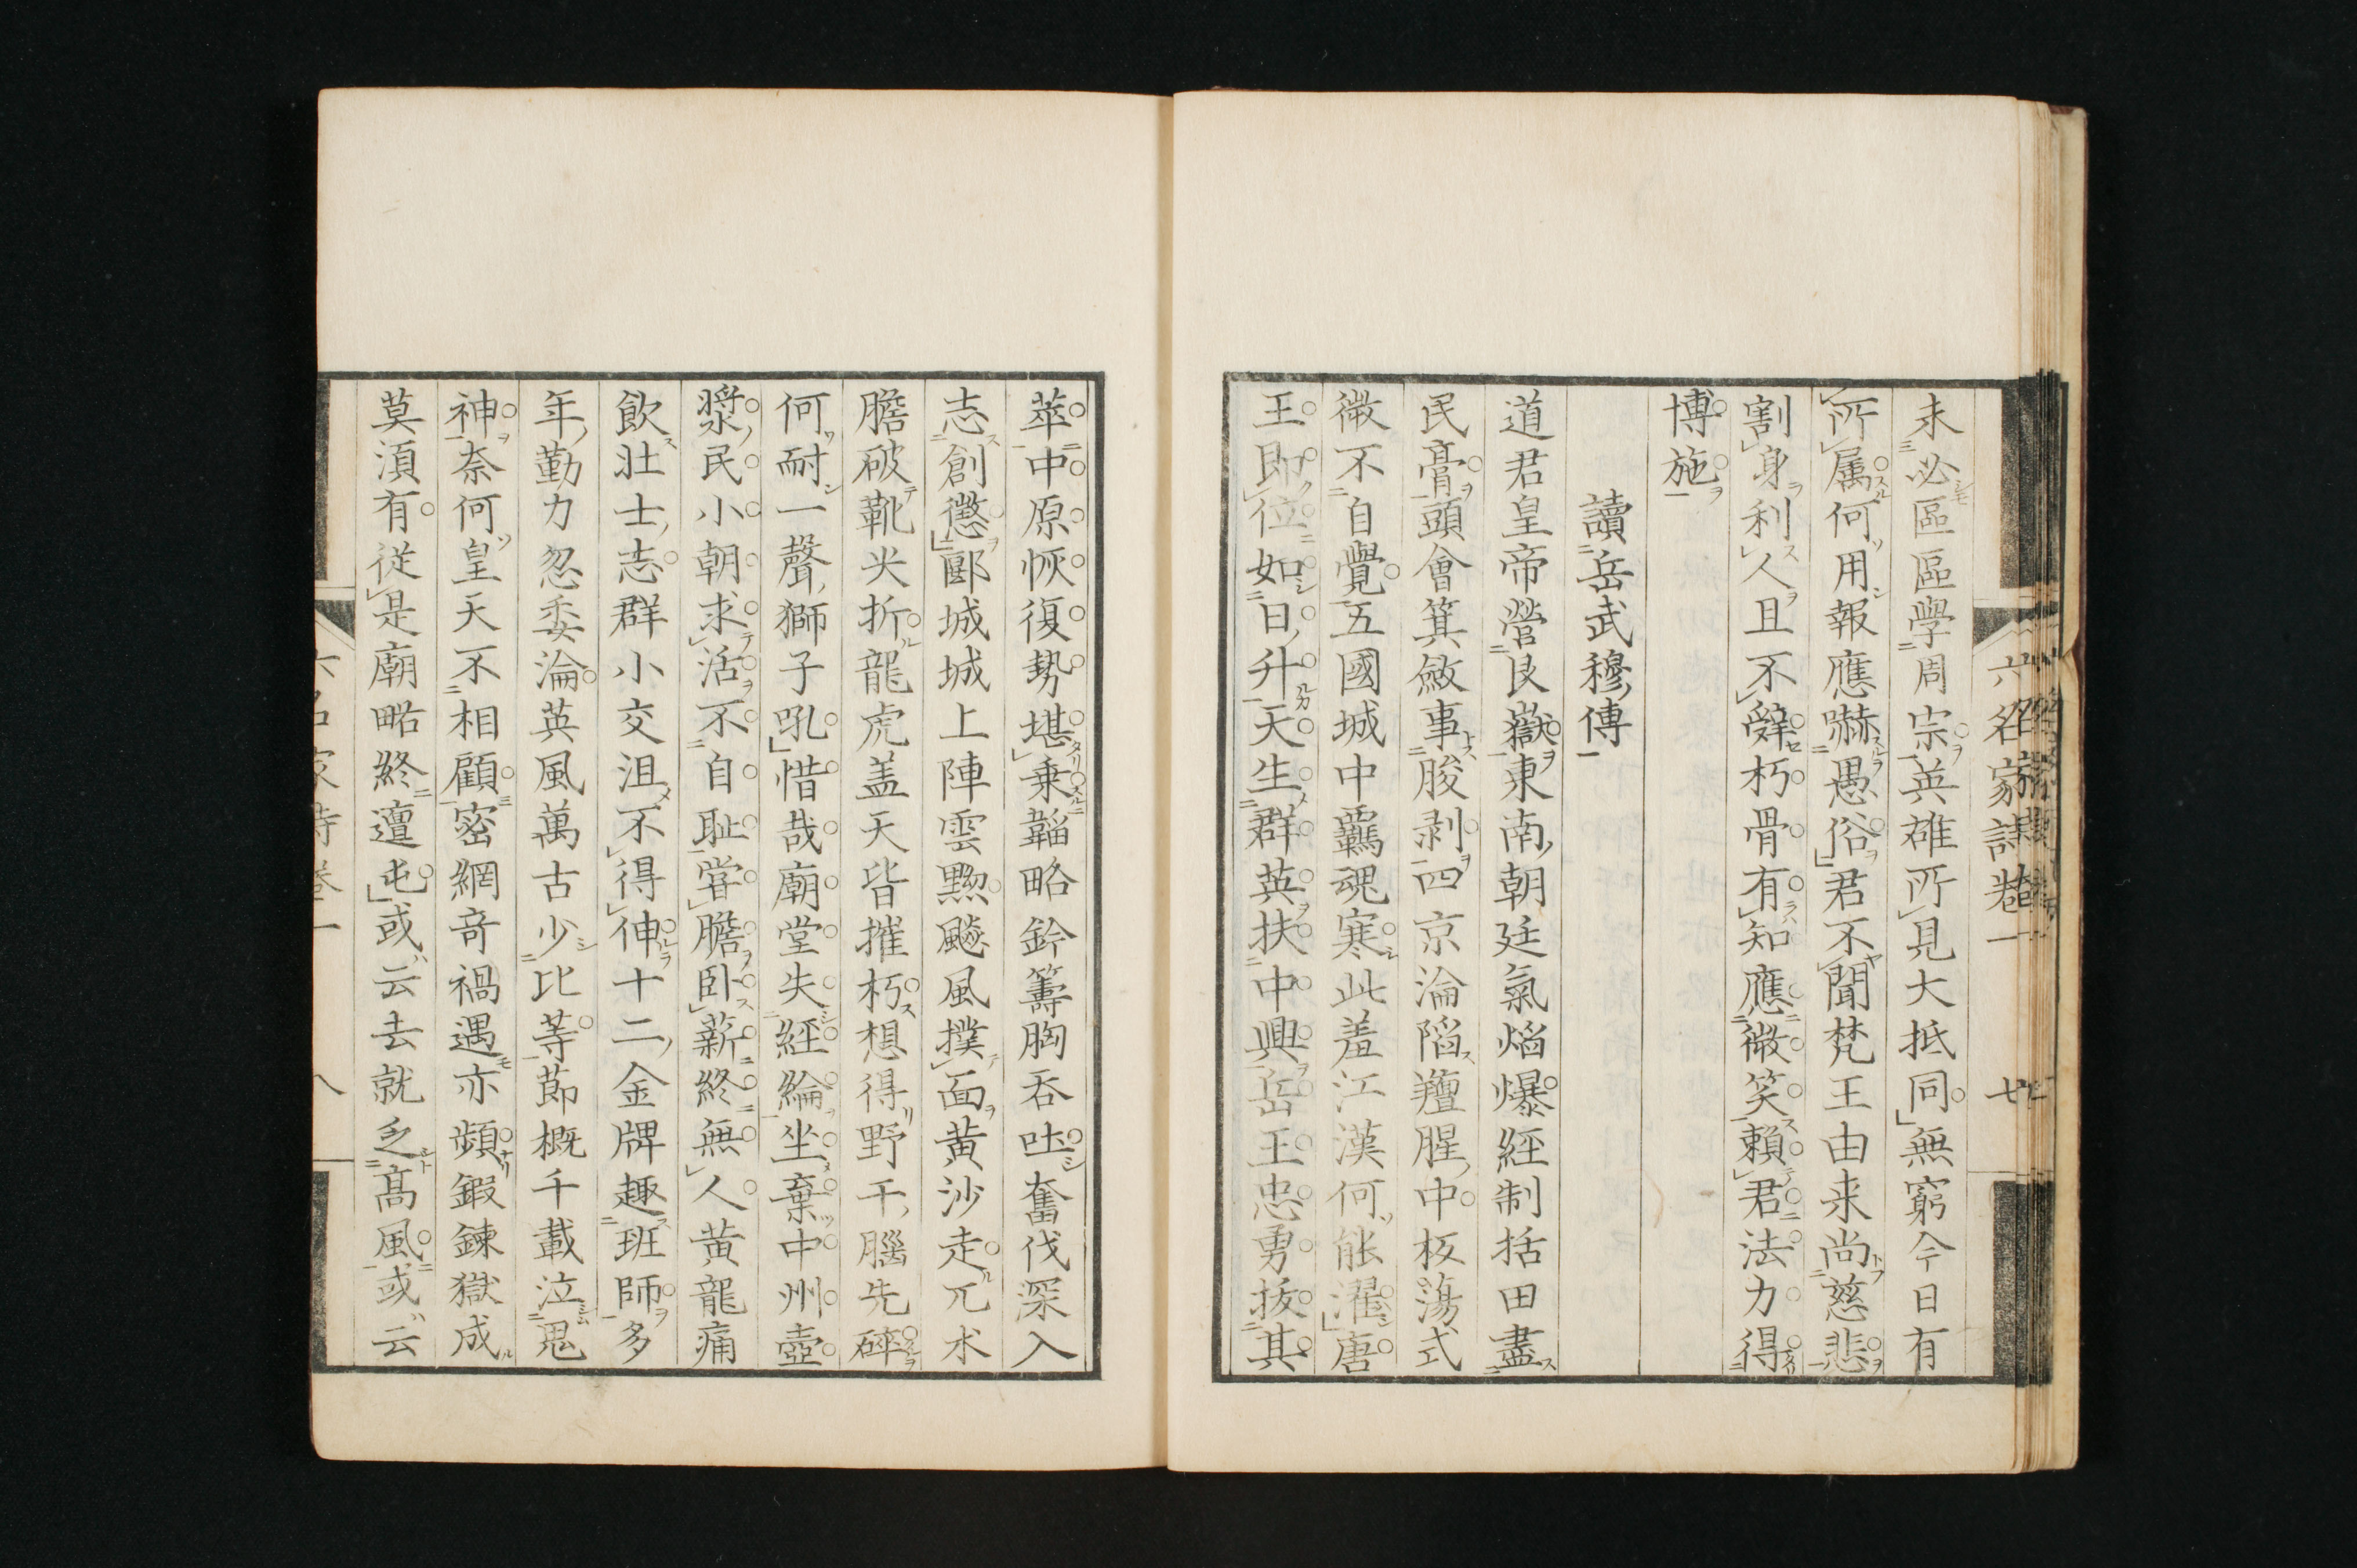 六名家詩巻一
七
未必區區學周宗英雄所見大抵同無窮今日有
所属何用報應嚇愚俗君不聞梵王由来尚慈悲
割身利人且不辭朽骨有知應微笑頼君法力得
博施
讀岳武穆傳
道君皇帝營艮嶽東南朝廷氣焔爆經制括田盡
民膏頭會箕斂事朘剥四京淪陷羶腥中板蕩式
微不自覺五國城中羈魂寒此羞江漢何能濯唐
王即位如日升天生群英扶中興岳王忠勇抜其
萃中原恢復勢堪乗韜略鈐籌胸呑吐奮伐深入
志創懲郾城城上陣雲黦飈風撲面黄沙走兀朮
膽破靴尖折龍虎盖天皆摧朽想得野干腦先碎
何耐一聲獅子吼惜哉廟堂失經綸坐棄中州壺
漿民小朝求活不自耻甞膽臥薪終無人黄龍痛
飲壮士志群小交沮不得伸十二金牌趣班師多
年勤力忽委淪英風萬古少比等莭概千載泣鬼
神奈何皇天不相顧密網奇禍遇亦頻鍛錬獄成
莫湏有従是廟略終邅屯或云去就乏髙風或云
六名家詩巻一
八